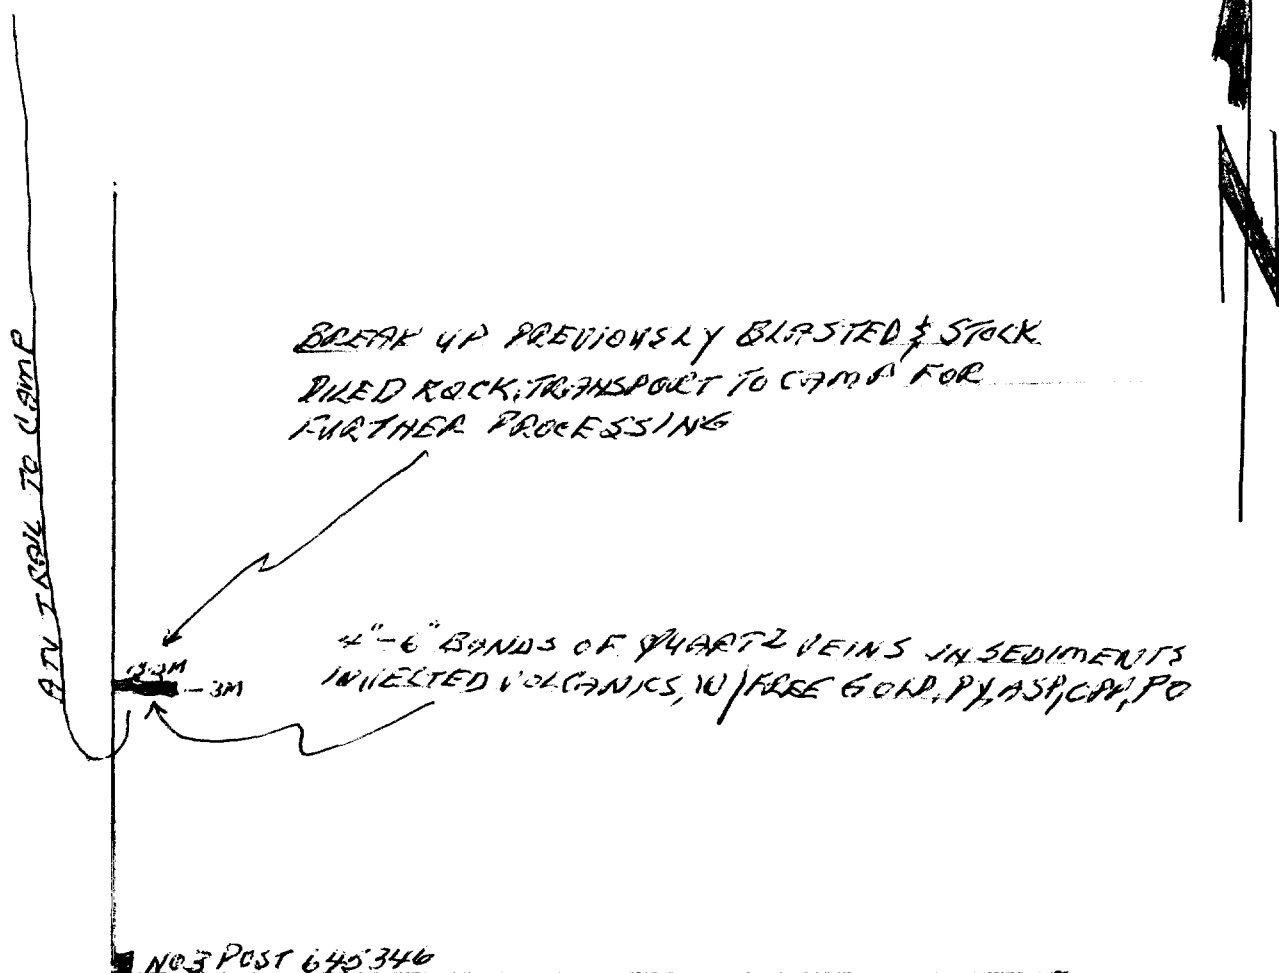 N
BREAK UP PREVIOUSLY BLASTED & STOCK
PILED ROCK, TRANSPORT TO CAMP FOR
FURTHER PROCESSING
ATV TRAIL TO CAMP
4"-6" BANDS OF QUARTZ VEINS IN SEDIMENTS
INJECTED VOLCANICS, W/FREE GOLD, PY, ASP, CPY, PO
- 3M
NO3 POST 645346